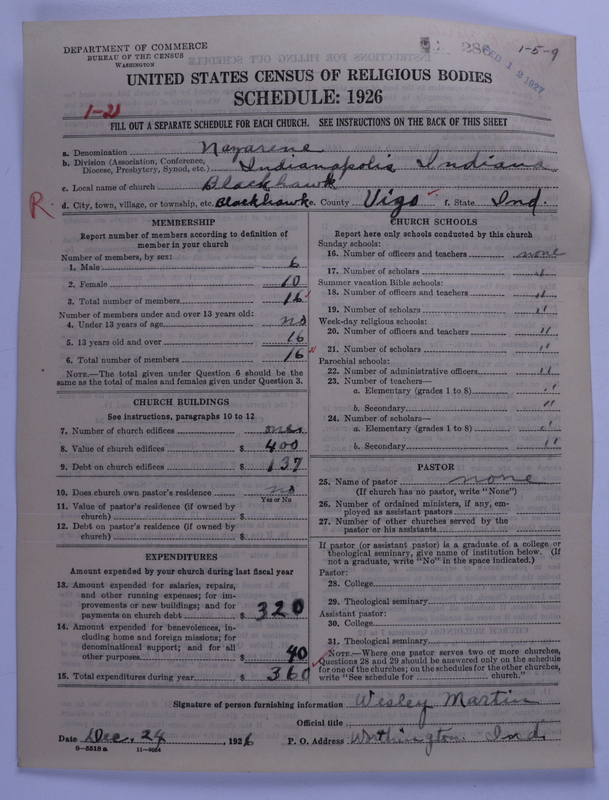 DEPARTMENT OF COMMERCE
BUREAU OF THE CENSUS
WASHINGTON
286
1-5-9
UNITED STATES CENSUS OF RELIGIOUS BODIES
SCHEDULE: 1926
1-21
FILL OUT A SEPARATE SCHEDULE FOR EACH CHURCH. SEE INSTRUCTIONS ON THE BACK OF THIS SHEET
a. Denomination Nazarene
b. Division (Association, Conference, Diocese, Presbytery, Synod, etc.) Indianapolis Indiana
c. Local name of church Blackhawk
R. d. City, town, village, or township, etc. Blackhawk e. County Vigo f. State Ind.
MEMBERSHIP
Report number of members according to definition of
member in your church
Number of members, by sex:
1. Male 6
2. Female 10
3. Total number of members 16
Number of members under and over 13 years old:
4. Under 13 years of age no
5. 13 years old and over 16
6. Total number of members 16
NOTE.—The total given under Question 6 should be the
same as the total of males and females given under Question 3.
CHURCH BUILDINGS
See instructions, paragraphs 10 to 12
7. Number of church edifices one
8. Value of church edifices $ 400
9. Debt on church edifices $ 137
10. Does church own pastor's residence no
Yes or No
11. Value of pastor's residence (if owned by
church) $
12. Debt on pastor's residence (if owned by
church) $
EXPENDITURES
Amount expended by your church during last fiscal year
13. Amount expended for salaries, repairs,
and other running expenses; for im-
provements or new buildings; and for
payments on church debt $ 320
14. Amount expended for benevolences, in-
cluding home and foreign missions; for
denominational support; and for all
other purposes $ 40
15. Total expenditures during year $ 360
CHURCH SCHOOLS
Report here only schools conducted by this church
Sunday schools:
16. Number of officers and teachers none
17. Number of scholars "
Summer vacation Bible schools:
18. Number of officers and teachers "
19. Number of scholars "
Week-day religious schools:
20. Number of officers and teachers "
21. Number of scholars "
Parochial schools:
22. Number of administrative officers "
23. Number of teachers—
a. Elementary (grades 1 to 8) "
b. Secondary "
24. Number of scholars—
a. Elementary (grades 1 to 8) "
b. Secondary "
PASTOR
25. Name of pastor none
(If church has no pastor, write "None")
26. Number of ordained ministers, if any, em-
ployed as assistant pastors
27. Number of other churches served by the
pastor or his assistants
If pastor (or assistant pastor) is a graduate of a college or
theological seminary, give name of institution below. (If
not a graduate, write "No" in the space indicated.)
Pastor:
28. College
29. Theological seminary
Assistant pastor:
30. College
31. Theological seminary
NOTE.—Where one pastor serves two or more churches,
Questions 28 and 29 should be answered only on the schedule
for one of the churches; on the schedules for the other churches,
write "See schedule for church."
Signature of person furnishing information Wesley Martin
Official title
Date Dec. 24, 1926 P. O. Address Worthington Ind.
8-5518 a 11-9054